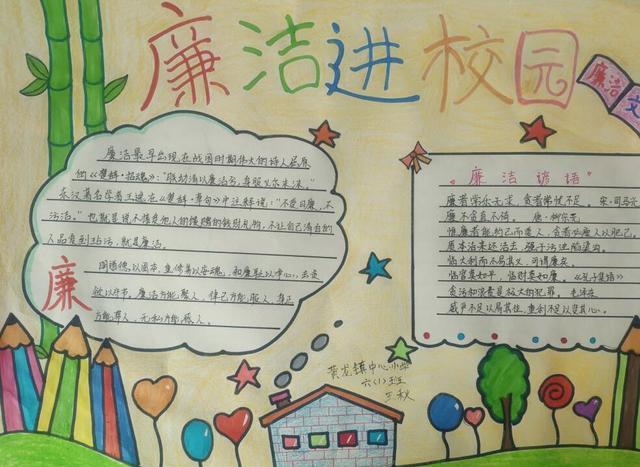 廉洁进校园
廉洁
文
廉洁最早出现在战国时期伟大的诗人屈原
的《楚辞·招魂》:"朕幼清以廉洁兮,身服义而未沫。"
东汉著名学者王逸在《楚辞·章句》中注释说:"不受曰廉,不
污曰洁。"也就是说不接受他人的馈赠的钱财礼物,不让自己清白的
人品受到玷污,就是廉洁。
廉
明道德,以固本,重修养以安魂,知廉耻以
敬以守节,廉洁方能聚人,律己方能服人,身正
方能带人,无私方能感人。
廉洁谚语
廉者常乐无求,贪者常忧不足
廉不贪直不倚。
惟廉者能约己而爱人,贪者必朘人以肥己。
临大利而不易其义,可谓廉矣。
临官莫如平,临财莫如廉。《孔子集语》
贪污和浪费是极大的犯罪。毛泽东
威严不足以易其位,重利不足以变其心。
黄龙镇中心小学
六(1)班
王秋